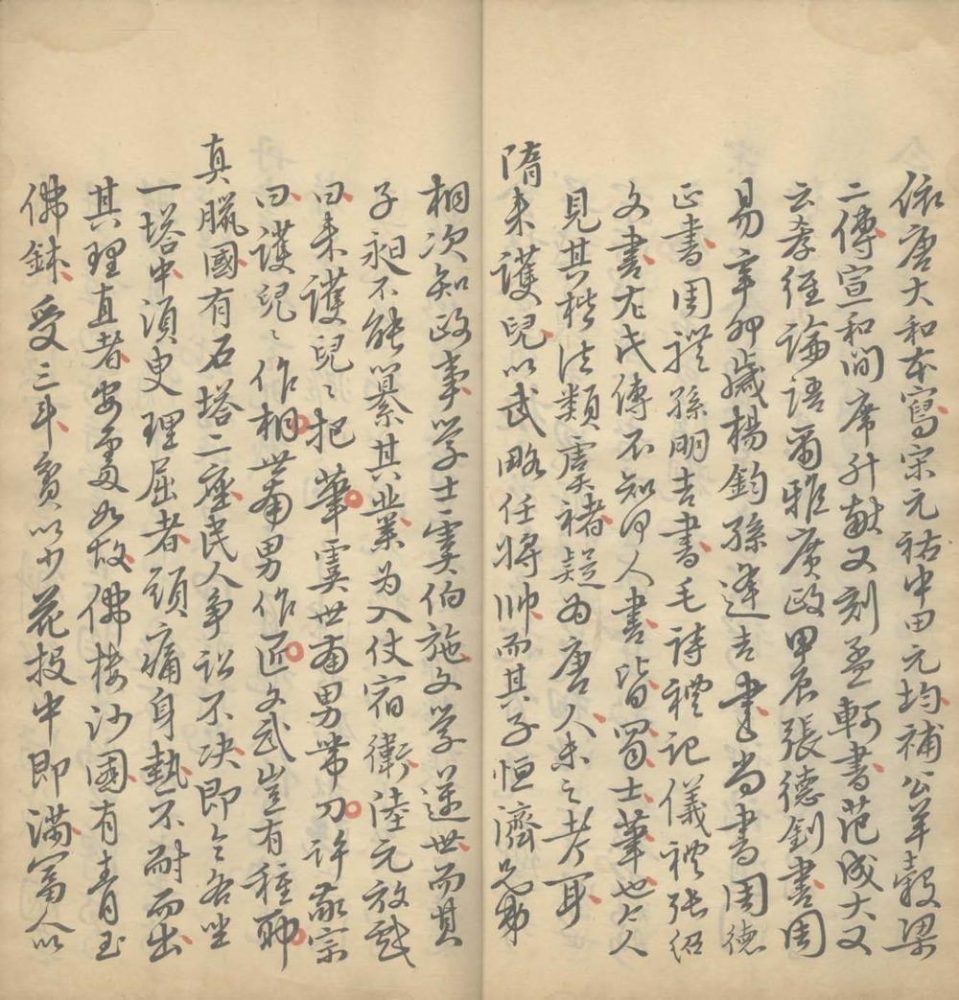 依唐大和本寫宋元祐中田元均補公羊穀梁
二傳宣和間席升獻又刻孟軻書范成大又
云孝經論語爾雅廣政甲辰張德釗書周
易辛卯歲楊鈞孫逢吉書尚書周德
正書周禮孫朋吉書毛詩禮記儀禮張紹
文書左氏傳不知何人書皆蜀士筆也今人
見其楷法類虞褚疑為唐人未之考耳
隋來護兒以武略任將帥而其子恒濟兄弟
相次知政事學士虞伯施文學遂世而其
子昶不能纂其業為入仗宿衛陸元放戲
曰來護兒〻把筆虞世南男帶刀許敬宗
曰護兒〻作相世南男作匠文武豈有種耶
真臘國有石塔二座民人爭訟不決即令各坐
一塔中須臾理屈者頭痛身熱不耐而出
其理直者安處如故佛樓沙國有青玉
佛鉢受三斗貧以少花投中即滿富人以